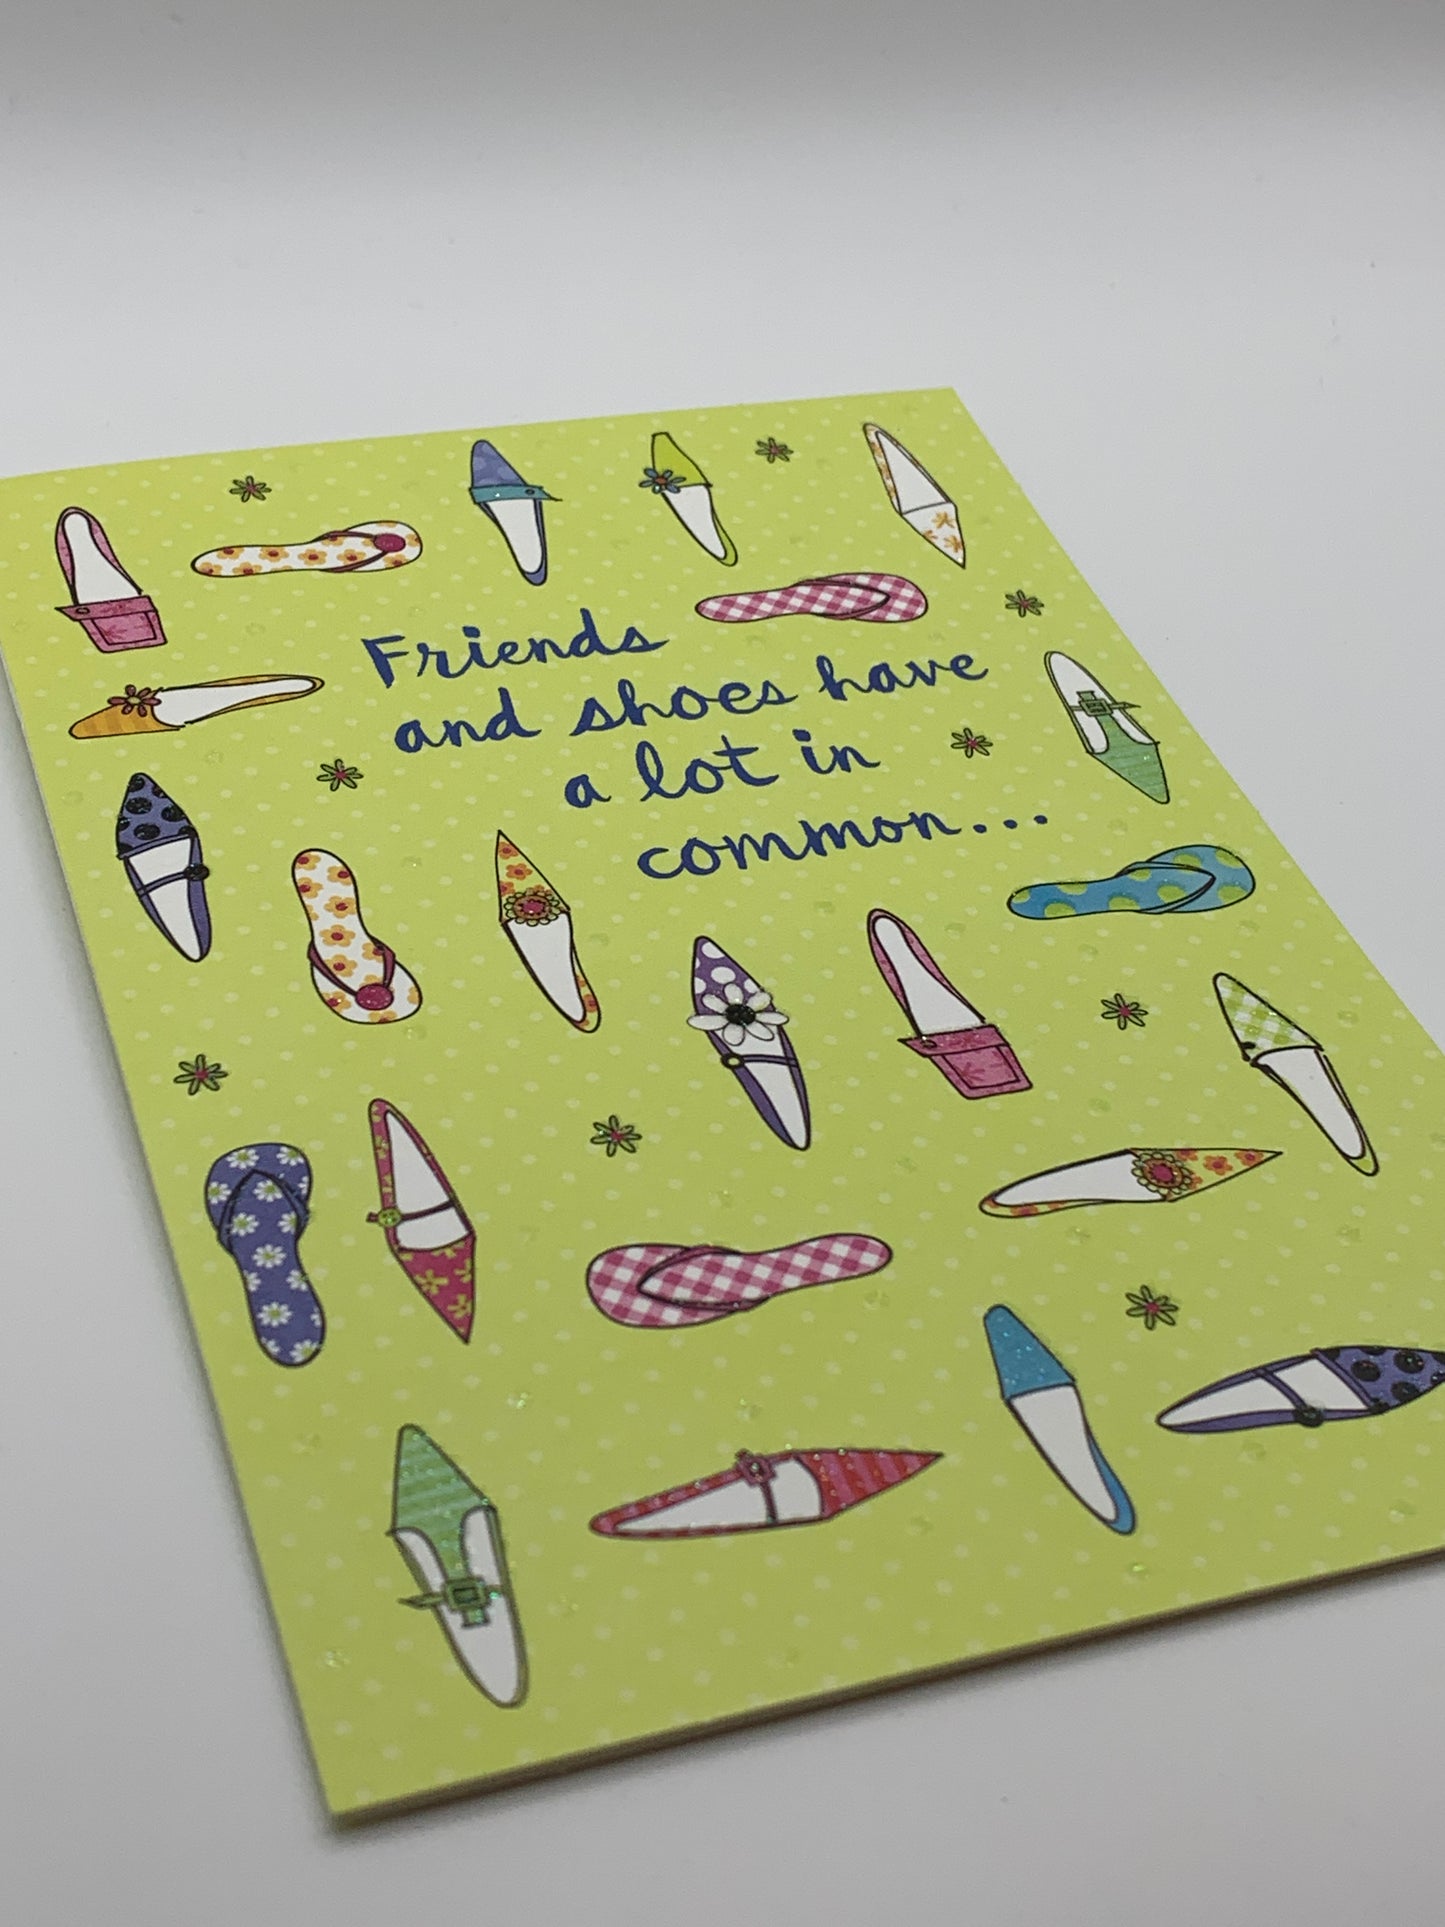 Friends
and shoes have
a lot in
common...